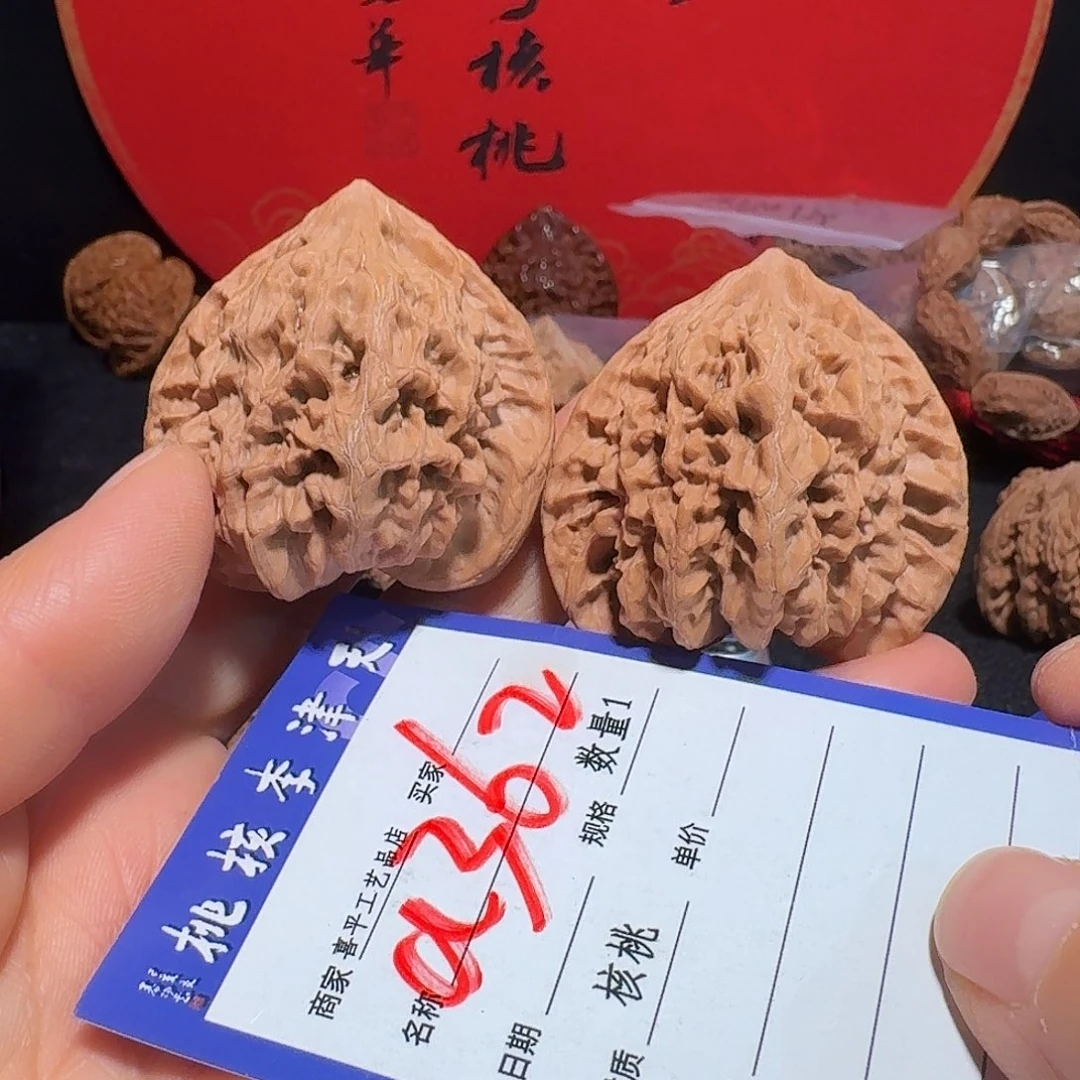 核
桃
华
天津李核桃
商家 喜平工艺品店 买家
名称 数量1
a362
日期 规格
核桃 单价
质